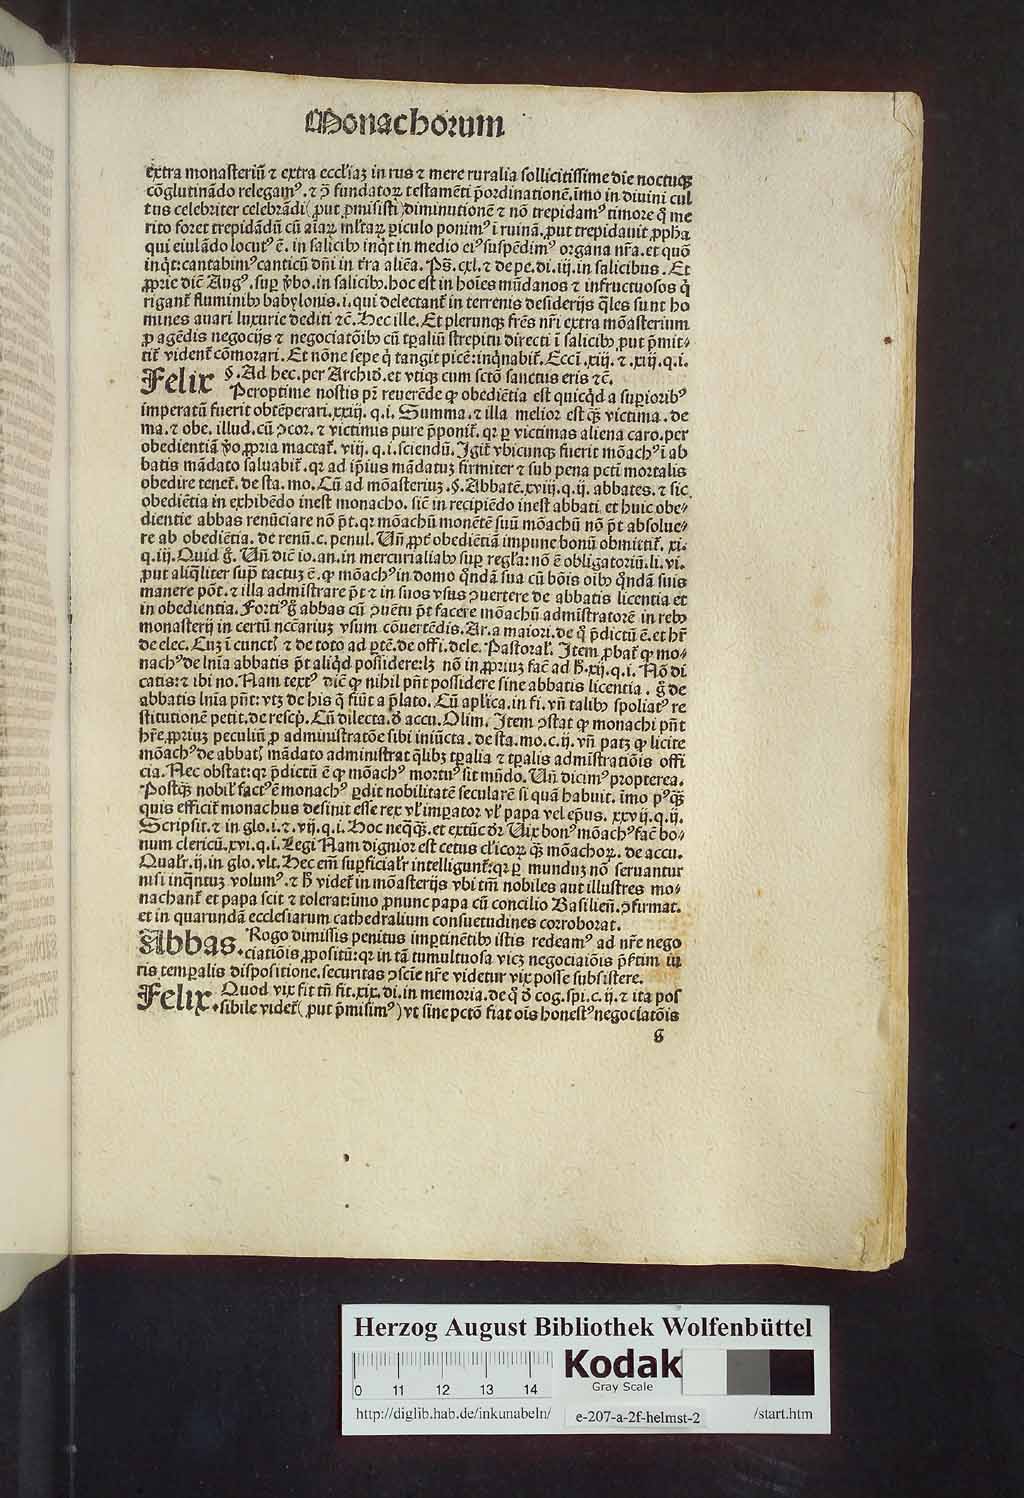 Monachorum
extra monasteriū ⁊ extra eccl'iaʒ in rus ⁊ mere ruralia sollicitissime die noctuqꝫ
cōglutinādo relegam⁹. ⁊ ꝯ fundatoꝝ testamēti p̄ordinationē.imo in diuini cul
tus celebriter celebrādi( ꝓut ꝓmisisti )diminutionē ⁊ nō trepidam⁹ timore q̇ me
rito foret trepidādū cū aīaꝝ ml'taꝝ ꝑiculo ponim⁹ ī ruinā.ꝓut trepidauit ꝓpħa
qui eiulādo locut⁹ ē. in salicibꝫ inq̇t in medio ei⁹ suspēdim⁹ organa nr̄a.et quō
inq̇t:cantabim⁹ canticū dn̄i in t̄ra aliēa. Ps̄. cxl. ⁊ de pe. di. iij. in salicibus. Et
ꝓprie dicē Aug⁹. suꝑ v̄bo.in salicibꝫ.hoc est in hoīes mūdanos ⁊ infructuosos q̇
rigant᷑ fluminibꝫ babylonis.i.qui delectant᷑ in terrenis desiderijs q̄les sunt ho
mines auari luxurie dediti ⁊cē. Hec ille. Et plerunqꝫ frēs nr̄i extra mōasterium
ꝓ agēdis negocijs ⁊ negociatōibꝫ cū tꝑaliū strepitu directi ī salicibꝫ ꝓut ꝑmit⸗
tit᷑ vident᷑ cōmorari. Et nōne sepe q̇ tangit picē:inq̇nabit᷑. Ecci. xiij. ⁊ .xij.q.i.
Felix §. Ad hec.per Archid̄.et vtiqꝫ cum sctō sanctus eris ⁊cē.
Peroptime nostis pr̄ reuerēde ꝙ obediētia est quicq̇d a suꝑioribꝰ
imperatū fuerit obtēperari.xxiij. q.i. Summa.⁊ illa melior est qꝫ̄ victima. de
ma.⁊ obe. illud.cū ꝯcor. ⁊ victimis pure p̄ponit᷑. qꝛ ꝑ victimas aliena caro.per
obedientiā v̄o ꝓpria mactat᷑. viij. q.i.sciendū. Igit᷑ vbicunqꝫ fuerit mōach⁹ ī ab
batis mādato saluabit᷑.qꝛ ad ip̄ius mādatuʒ firmiter ⁊ sub pena pctī mortalis
obedire tenet᷑. de sta. mo. Cū ad mōasteriuʒ .§. Abbatē.xviij.q.ij. abbates. ⁊ sic
obediētia in exhibēdo inest monacho. sic̄ in recipiēdo inest abbati et huic obe⸗
dientie abbas renūciare nō p̄t.qꝛ mōachū monētē suū mōachū nō p̄t absolue⸗
re ab obediētia. de renū.c. penul. Vn̄ ꝓpt᷑ obediētiā impune bonū obmittit᷑. xi.
q.iij. Quid g̊. Vn̄ dicē io.an.in mercurialibꝫ suꝑ regl'a: nō ē obligatoriū.li. vi.
ꝓut aliq̄liter sup̄ tactuʒ ē.ꝙ mōach⁹ in domo q̄ndā sua cū bōis oībꝫ q̄ndā suis
manere pōt.⁊ illa admīstrare p̄t ⁊ in suos vsus ꝯuertere de abbatis licentia et
in obedientia. Forti⁹ g̊ abbas cū ꝯuētu p̄t facere mōachū admīstratorē in rebꝫ
monasterij in certū nccē̄ariuʒ vsum cōuertēdis. Ar. a maiori. de q̇ p̄dictū ē.et hr̄
de elec. Cuʒ ī cunctꝭ ⁊ de toto ad ꝑtē.de offi.dele. Pastoral'. Item ꝓbat᷑ ꝙ mo⸗
nach⁹ de lnīa abbatis p̄t aliq̇d possidere:lꝫ nō in ꝓpriuʒ fac̄ ad ħ.xij.q.i. Nō di
catis:⁊ ibi no. Nam text⁹ dicē ꝙ nihil pn̄t possidere sine abbatis licentia . g̊ de
abbatis lnīa pn̄t: vtꝫ de his q̄ fiūt a p̄lato. Cū apl'ica.in fi.vn̄ talibꝫ spoliat⁹ re
stitutionē petit.de rescp̄. Cū dilecta.d̄ accu. Olim. Item ꝯstat ꝙ monachi pn̄t
hr̄e ꝓpriuʒ peculiū ꝓ administratōe sibi iniūcta. de sta.mo.c.ij. vn̄ patꝫ ꝙ licite
mōach⁹ de abbatꝭ mādato administrat q̄libꝫ tꝑalia ⁊ tꝑalis admīstratiōis offi
cia. Nec obstat:qꝛ p̄dictū ē ꝙ mōach⁹ mortu⁹ sit mūdo. Vn̄ dicim⁹ propterea.
Postqꝫ̄ nobil' fact⁹ ē monach⁹ ꝑdit nobilitatē secularē si quā habuit. īmo p⁹qꝫ̄
quis efficit᷑ monachus desinit esse rex vl' imꝑator vl' papa vel ep̄us. xxvij.q.ij.
Scripsit.⁊ in glo.i.⁊.vij.q.i. Hoc neqꝫ̄qꝫ̄.et extūc dr̄ Vix bon⁹ mōach⁹ fac̄ bo⸗
num clericū.xvi.q.i. Legi Nam dignior est cetus cl'icoꝝ qꝫ̄ mōachoꝝ. de accu.
Qualr̄.ij.in glo.vlt. Hec em̄ suꝑficialr̄ intelligunt᷑:qꝛ ꝑ munduʒ nō seruantur
nisi inq̄ntuʒ volum⁹.⁊ ħ videt᷑ in mōasterijs vbi tm̄ nobiles aut illustres mo⸗
nachant᷑ et papa scit ⁊ tolerat:īmo ꝓnunc papa cū concilio Basilien̄.ꝯfirmat.
et in quarundā ecclesiarum cathedralium consuetudines corroborat.
Abbas. Rogo dimissis penitus imꝑtinētibꝫ istis redeam⁹ ad nr̄e nego
ciatiōis ꝓpositū:qꝛ in tā tumultuosa vicꝫ negociaiōis p̄ſertim iu
ris temꝑalis dispositione.securitas ꝯscīe nr̄e videtur vix posse subsistere.
Felix. Quod vix fit tn̄ fit.xix.di.in memoria.de q̇ d̄ cog.spi.c.ij.⁊ ita pos
sibile videt᷑( ꝓut p̄misim⁹ )vt sine pctō fiat oīs honest⁹ negociatōis
g
Herzog August Bibliothek Wolfenbüttel
0 11 12 13 14
Kodak
Gray Scale
http://diglib.hab.de/inkunabeln/ e-207-a-2f-helmst-2 /start.htm